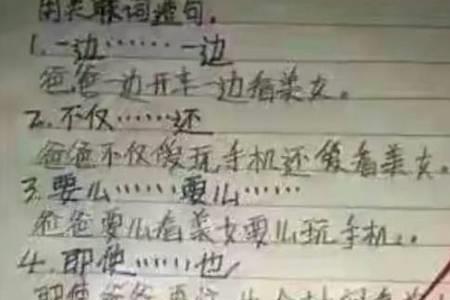 用关联词造句。
1.一边……一边
爸爸一边开车一边看美女。
2.不仅……还
爸爸不仅爱玩手机还爱看美女。
3.要么……要么……
爸爸要么看美女要么玩手机。
4.即使……也
即使爸爸再